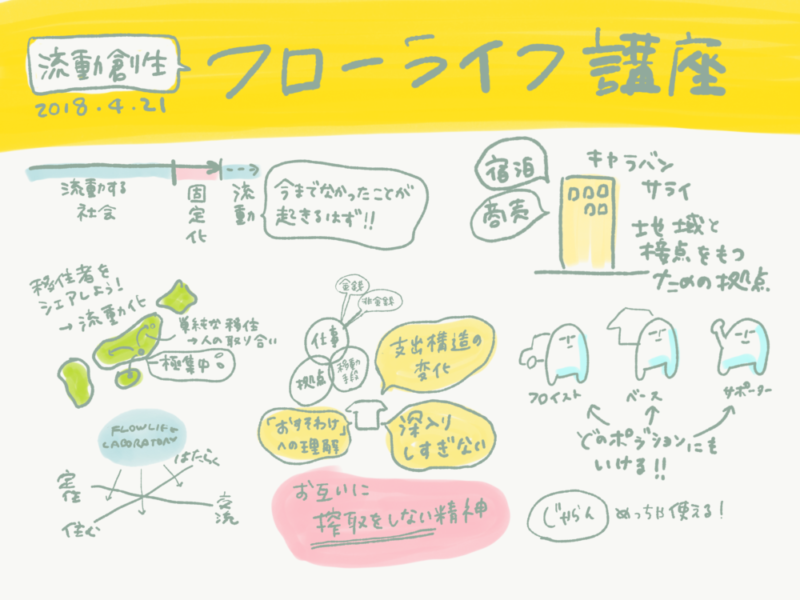 流動創生
2018.4.21
フローライフ講座
流動する
社会
固定化
流動
今までなかったことが
起きるはず!!
宿泊
商売
キャラバン
サライ
地域と
接点をもつ
ための拠点
移住者を
シェアしよう!
→流動化
単純な移住
→人の取り合い
極集中
金銭
非金銭
仕事
拠点
移動
手段
支出構造の
変化
「おすそわけ」
への理解
深入り
しすぎない
フロイスト
ベース
サポーター
どのポジションにも
いける!!
FLOWLIFE
LABORATORY
はたらく
定住
交流
住む
お互いに
搾取をしない精神
じゃらん
めっちゃ使える!